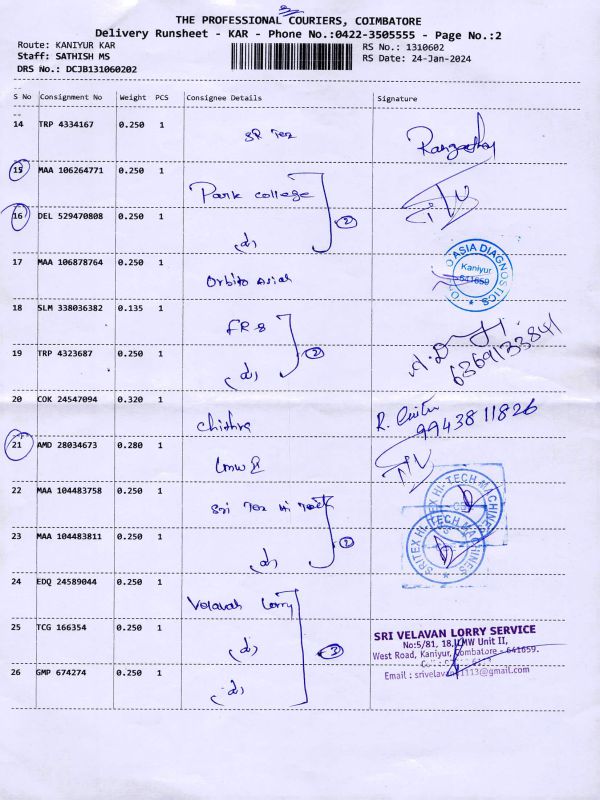 THE PROFESSIONAL COURIERS, COIMBATORE
Delivery Runsheet - KAR - Phone No.:0422-3505555 - Page No.:2
Route: KANIYUR KAR
RS No.: 1310602
Staff: SATHISH MS
RS Date: 24-Jan-2024
DRS No.: DCJB131060202
S No Consignment No Weight PCS Consignee Details Signature
14 TRP 4334167 0.250 1
SR Tex
15 MAA 106264771 0.250 1
Park college
16 DEL 529470808 0.250 1
(2)
17 MAA 106878764 0.250 1
Orbito Asiah
ORBITO ASIA DIAGNOSTICS
Kaniyur
641659
18 SLM 338036382 0.135 1
FR-8
19 TRP 4323687 0.250 1
(2)
6369133841
20 COK 24547094 0.320 1
Chithra
R. Chitra
9943811826
21 AMD 28034673 0.280 1
Lmw
22 MAA 104483758 0.250 1
Sri Tex Hi Tech
SRITEX HI-TECH MACHINES
23 MAA 104483811 0.250 1
(2)
SRITEX HI-TECH MACHINES
24 EDQ 24589044 0.250 1
Velavan Lorry
25 TCG 166354 0.250 1
(3)
SRI VELAVAN LORRY SERVICE
No:5/81, 18, LMW Unit II,
West Road, Kaniyur, Coimbatore - 641659.
26 GMP 674274 0.250 1
Email : srivelavan1113@gmail.com